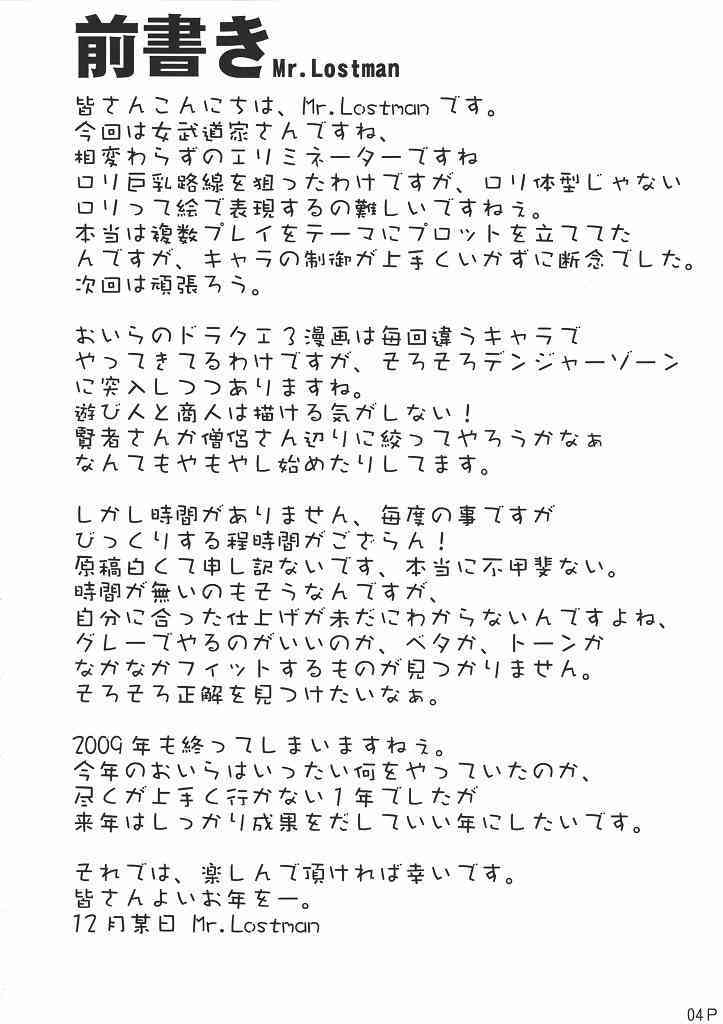 前書き Mr.Lostman
皆さんこんにちは、Mr.Lostmanです。
今回は女武道家さんですね、
相変わらずのエリミネーターですね
ロリ巨乳路線を狙ったわけですが、ロリ体型じゃない
ロリって絵で表現するの難しいですねぇ。
本当は複数プレイをテーマにプロットを立ててた
んですが、キャラの制御が上手くいかずに断念でした。
次回は頑張ろう。
おいらのドラクエ3漫画は毎回違うキャラで
やってきてるわけですが、そろそろデンジャーゾーン
に突入しつつありますね。
遊び人と商人は描ける気がしない！
賢者さんか僧侶さん辺りに絞ってやろうかなぁ
なんてもやもやし始めたりしてます。
しかし時間がありません、毎度の事ですが
びっくりする程時間がござらん！
原稿白くて申し訳ないです、本当に不甲斐ない。
時間が無いのもそうなんですが、
自分に合った仕上げが未だにわからないんですよね、
グレーでやるのがいいのか、ベタか、トーンか
なかなかフィットするものが見つかりません。
そろそろ正解を見つけたいなぁ。
2009年も終ってしまいますねぇ。
今年のおいらはいったい何をやっていたのか、
尽くが上手く行かない1年でしたが
来年はしっかり成果をだしていい年にしたいです。
それでは、楽しんで頂ければ幸いです。
皆さんよいお年をー。
12月某日 Mr.Lostman
04P